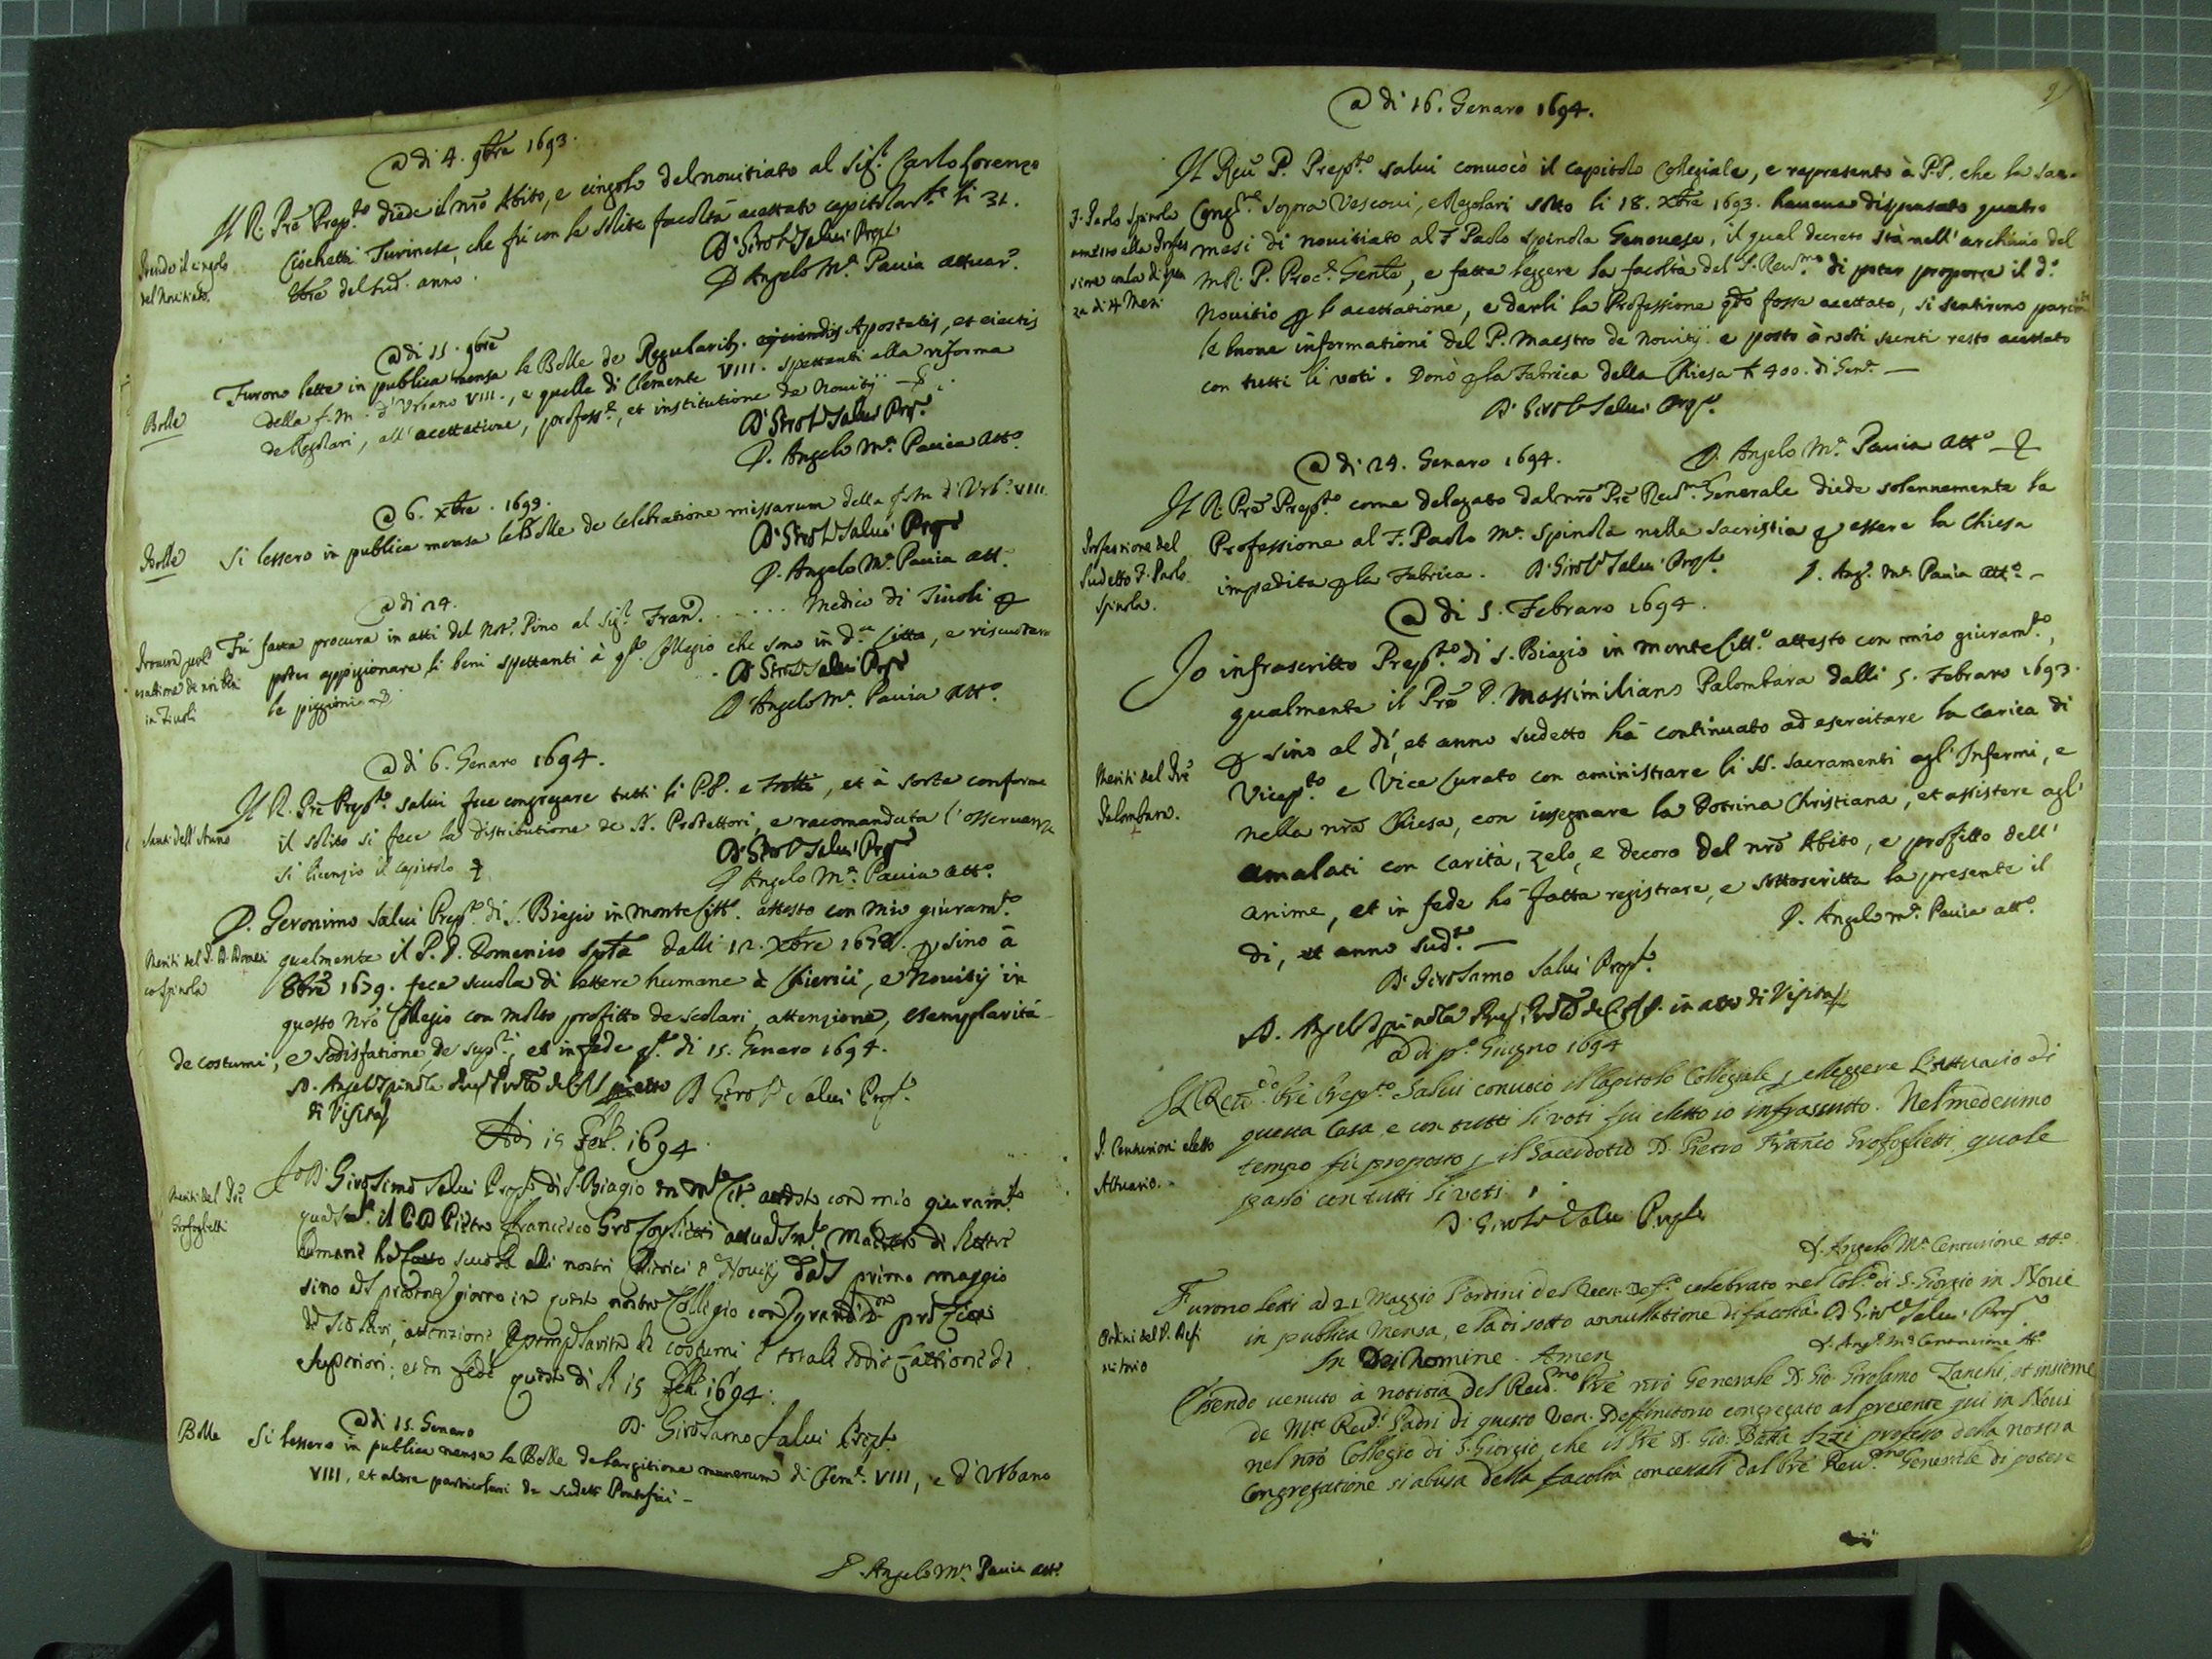 @ di 4. 9bre 1693.
Il R. Prē Prep.to diede il nrō Abito, e cingolo del novitiato al Sig.r Carlo Lorenzo
Ciochetti Turinese, che fú con le solite facoltà acettato capitolar.te li 31.
8bre del sud. anno.
Prende il cingolo
del Novitiato.
D. Girol.o Salvi Prep.to
D. Angelo M.a Pavia attuar.o
@ di 11. 9bre
Furon lette in publica mensa le Bolle de Regularib. Apostatis, et eiectis
della f.m. d'Urbano VIII., e quelle di Clemente VIII. spettanti alla riforma
de Regolari, all'acettatione, profess.e, et institutione de Novitij
Bolle
D. Girol.o Salvi Prep.to
D. Angelo M.a Pavia Att.o
@ 6. Xbre. 1693.
Si lessero in publica mensa le Bolle de Celebratione missarum della f.m. d'Urb.o VIII
Bolle
D. Girol.o Salvi Prep.to
D. Angelo M.a Pavia att.
@ di 24.
Fú fatta procura in atti del Not.o Pino al Sig.r Fran.o ..... Medico di Tivoli
poter appigionare li beni spettanti à q.sto Collegio che sono in d.a Città, e riscuotere
le piggioni
in Tivoli
D. Girol.o Salvi Prep.to
D. Angelo M.a Pavia Att.o
@ di 6. Genaro 1694.
Il R. Prē Prep.to Salvi fece congregare tutti li P.P. e Fratti, et à sorte conforme
il solito si fece la distributione de SS. Protettori, e racomandata l'osservanza
si licenzio il capitolo
Santi dell'Anno
D. Girol.o Salvi Prep.to
D. Angelo M.a Pavia att.o
D. Geronimo Salvi Prep.to di S. Biagio in Monte Citt.o attesto con mio giuram.to
qualmente il P. D. Domenico Sp.la dalli 12. Xbre 1678. sino à
8bre 1679. fece scuola di lettere humane à Chierici, e Novitij in
questo Nrō Collegio con molto profitto de scolari, attenzione, esemplarità
de costumi, e sodisfatione de sup.ri, et in fede q.sto di 15. Genaro 1694.
Meriti del P. D. Domeni
co Spinola
D. Angelo Spinola
di Visita
D. Girol.o Salvi Prep.to
Adi 15 Feb. 1694.
Io D. Girolimo Salvi Prep.to di S. Biagio in M.te Cit.o attesto con mio giuram.to
qualm.te il P. D. Pietro Francesco Grosoglietti attualm.te Maestro di lettere
humane ha fatto scuola alli nostri Chierici e Novitij dal primo maggio
sino al presente giorno in questo nostro Collegio con grandis.mo profitto
de scolari, attenzione, esemplarità de costumi e totale sodisfattione de
Superiori; et in fede questo di li 15 Feb. 1694.
Meriti del Prē
Grosoglietti
D. Girolamo Salvi Prep.to
@ di 15. Genaro
Si lessero in publica mensa le Bolle de largitione munerum di Clem.e VIII, e d'Urbano
VIII, et altre particolari de sudetti Pontefici
Bolle
D. Angelo M.a Pavia att.o
@ di 16. Genaro 1694.
Il Revd P. Prep.to Salvi convocò il capitolo Collegiale, e representò à P.P. che la Sac.
Cong.ne sopra Vescovi, e Regolari sotto li 18. Xbre 1693. haveva dispensato quatro
mesi di novitiato al F. Paolo Spinola Genovese, il qual decreto stà nell'archivio del
M.R. P. Proc.r Gen.le, e fatta leggere la facoltà del P. Rev.mo di poter proporre il d.o
Novitio p l'acettatione, e darli la Professione q.do fosse acettato, si sentirono
le buone informationi del P. Maestro de Novitij e posto à voti secreti resto acettato
con tutti li voti. Donò p la Fabrica della Chiesa 400. di Gen.a
F. Paolo Spinola
amesso alla Profes
sione con la dispen
za di 4 Mesi
D. Girol.o Salvi Prep.to
D. Angelo M.a Pavia Att.o
@ di 24. Genaro 1694.
Il R. Prē Prep.to come delegato dal nrō Prē Rev.mo Generale diede solennemente la
Professione al F. Paolo M.a Spinola nella sacristia p essere la Chiesa
impedita p la Fabrica. D. Girol.o Salvi Prep.to D. Ang.o M.a Pavia Att.o
Professione del
Sudetto F. Paolo
Spinola.
@ di 5. Febraro 1694.
Io infrascritto Prep.to di S. Biagio in Monte Citt.o attesto con mio giuram.to,
qualmente il Prē D. Massimiliano Palombara dalli 5. Febraro 1693.
p sino al dí, et anno sudetto hà continuato ad esercitare la carica di
Vicep.to e Vice Curato con aministrare li SS. Sacramenti agl'Infermi, e
nella nrā Chiesa, con insegnare la Dotrina Christiana, et assistere agl'
amalati con carità, zelo, e decoro del nrō Abito, e profitto dell'
anime, et in fede hò fatta registrare, e sottoscritta la presente il
dì, et anno sud.o
Meriti del Prē
Palombara.
D. Angelo M.a Pavia att.o
D. Girolamo Salvi Prep.to
D. Angelo Spinola in atto di Visita
@ di p.o Giugno 1694
Il Rev.do Prē Prep.to Salvi convocò il Capitolo Collegiale p eleggere l'Attuario di
questa Casa, e con tutti li voti fui eletto io infrascritto. Nel medesimo
tempo fù proposto p il Sacerdotio D. Pietro Franco Grosoglietti, quale
passò con tutti li voti
P. Centurioni eletto
Attuario.
D. Girol.o Salvi Prep.to
D. Angelo M.a Centurione Att.o
Furono letti ad 21 Maggio l'ordini del Ven. Def.o celebrato nel Col.o di S. Giorgio in Novi
in publica mensa, e la di sotto annullatione di facoltà. D. Girol.o Salvi Prep.to
D. Ang.o M.a Centurione Att.o
Ordini del V. Defi
nitorio
In Dei Nomine. Amen
Essendo venuto à notitia del Rev.mo Prē nrō Generale D. Gio. Girolamo Zanchi, et insieme
de M.to Rev.di Padri di questo Ven. Deffinitorio congregato al presente qui in Novi
nel nrō Collegio di S. Giorgio, che il Prē D. Gio. Batta Izzi professo della nostra
Congregatione si abusa della facoltà concessali dal Prē Rev.mo Generale di potere